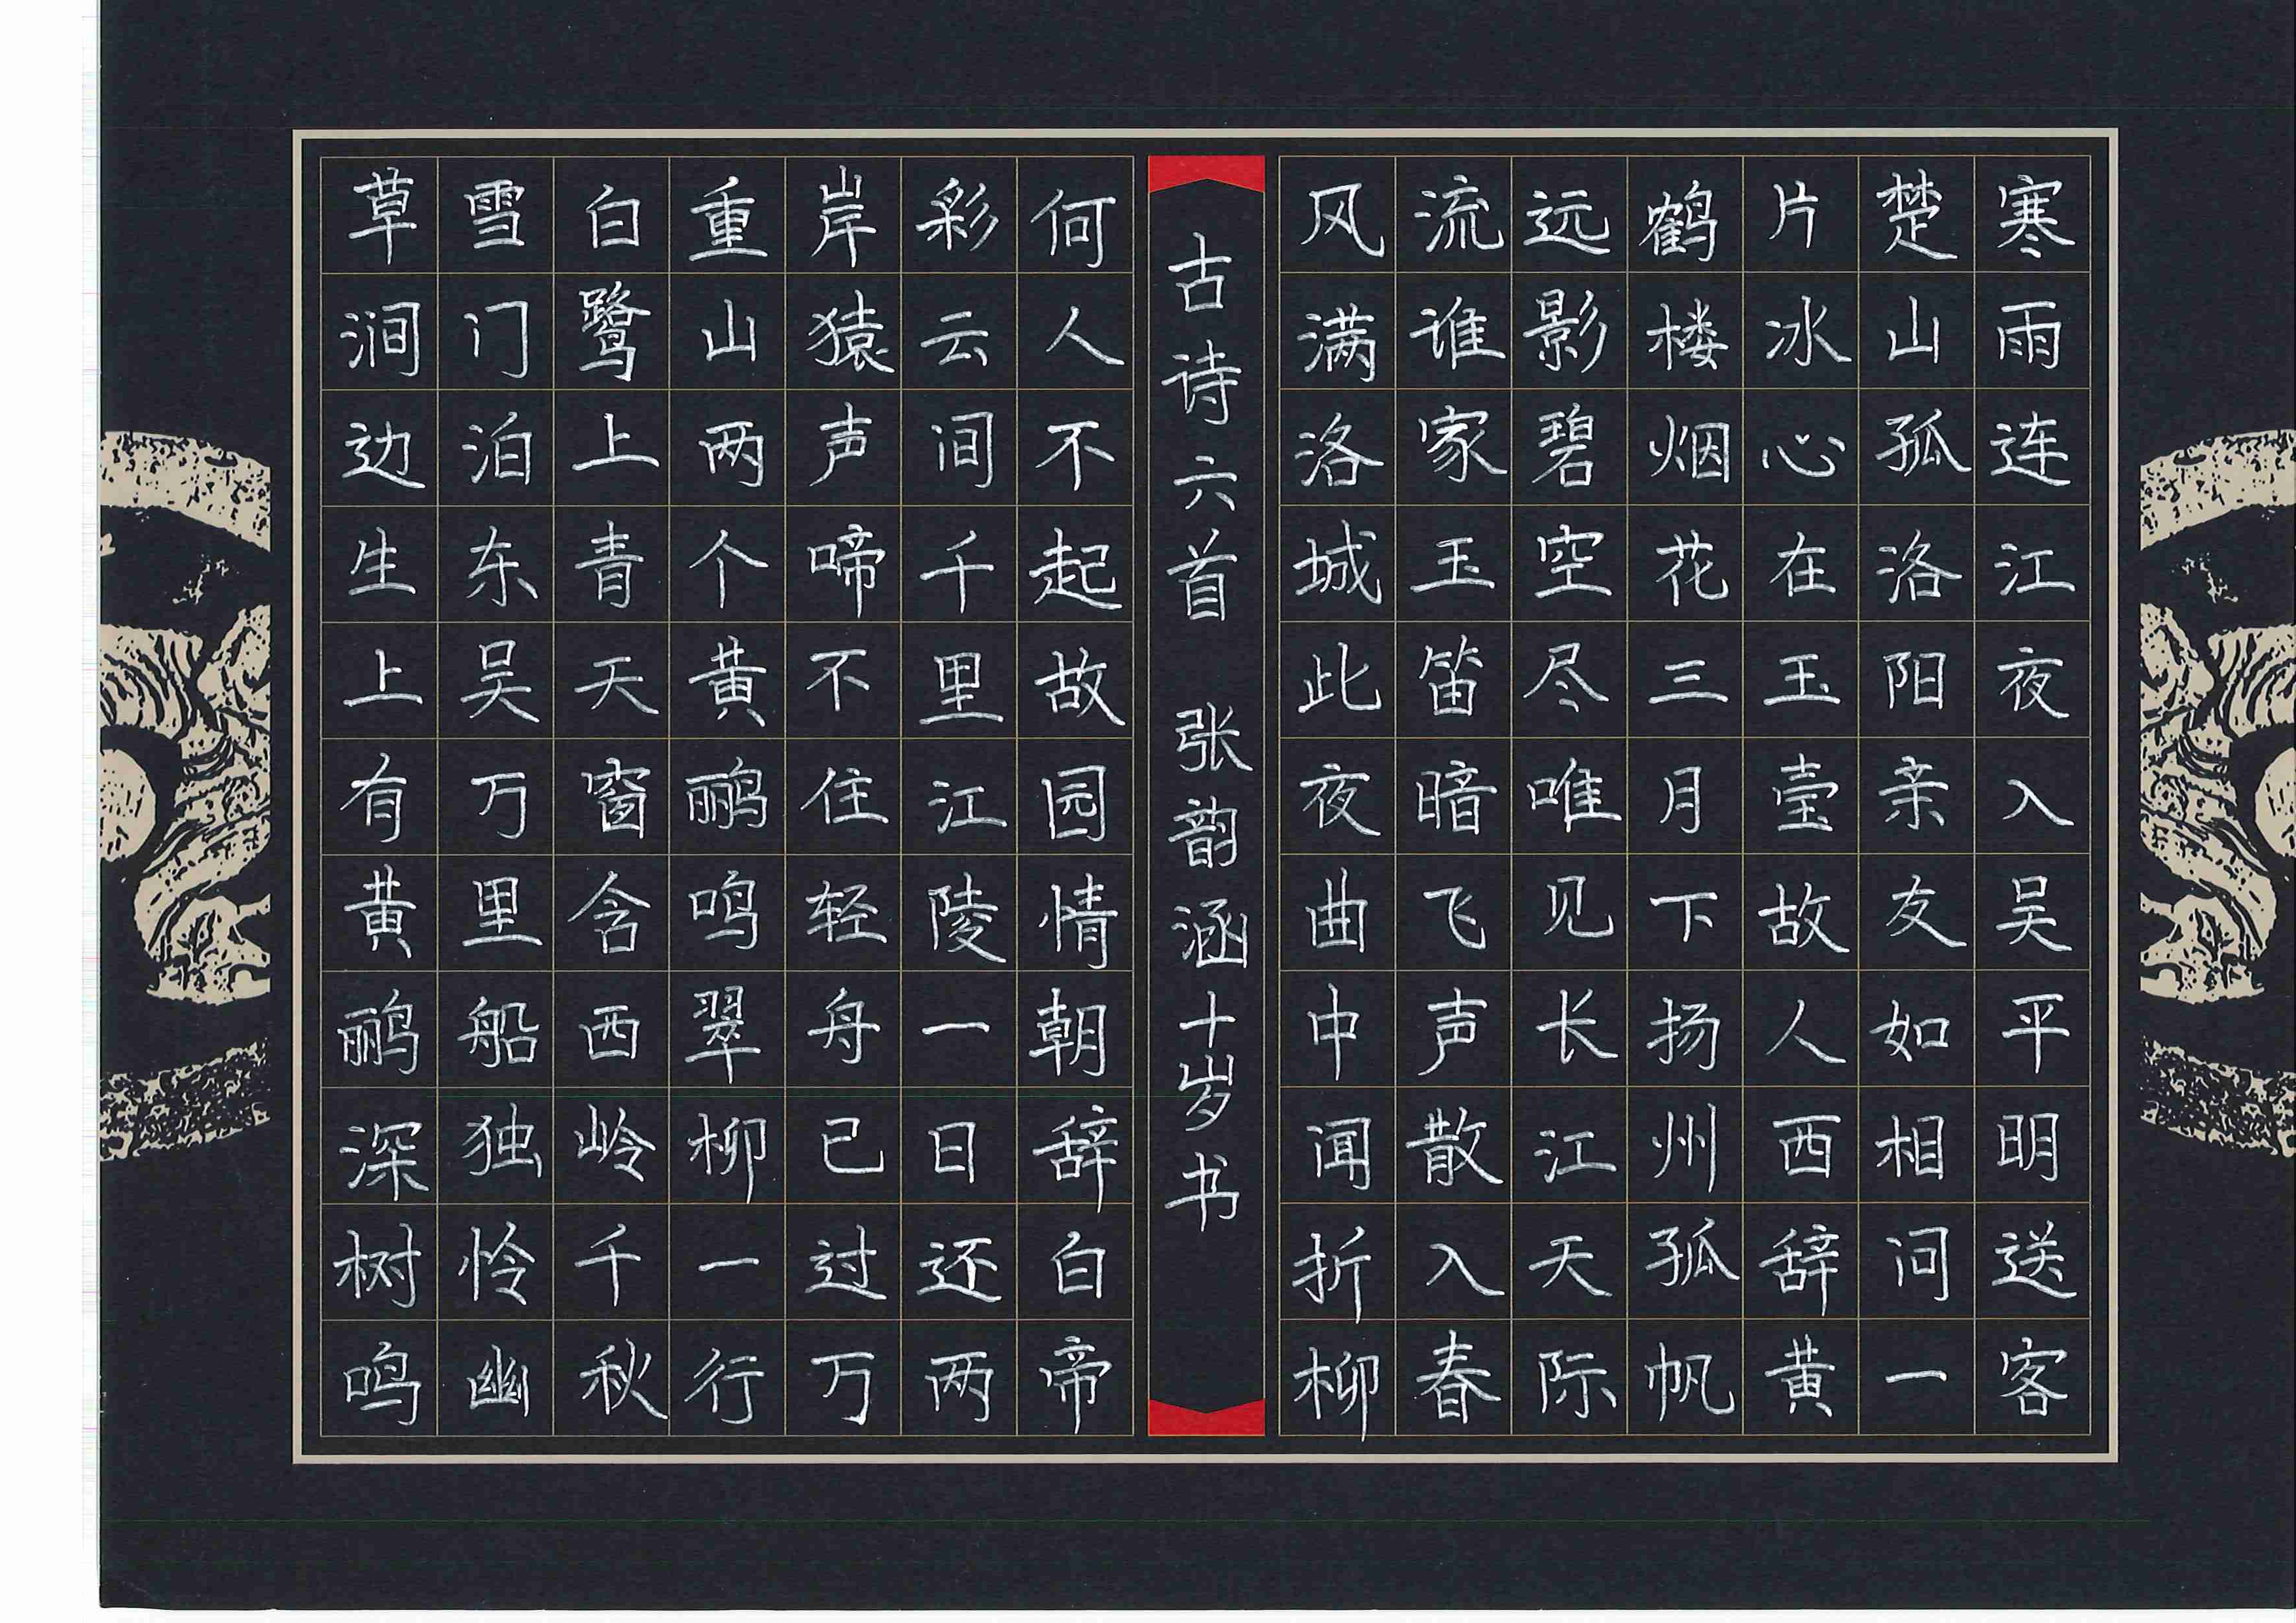 寒雨连江夜入吴平明送客
楚山孤洛阳亲友如相问一
片冰心在玉壶故人西辞黄
鹤楼烟花三月下扬州孤帆
远影碧空尽唯见长江天际
流谁家玉笛暗飞声散入春
风满洛城此夜曲中闻折柳
古诗六首 张韵涵十岁书
何人不起故园情朝辞白帝
彩云间千里江陵一日还两
岸猿声啼不住轻舟已过万
重山两个黄鹂鸣翠柳一行
白鹭上青天窗含西岭千秋
雪门泊东吴万里船独怜幽
草涧边生上有黄鹂深树鸣